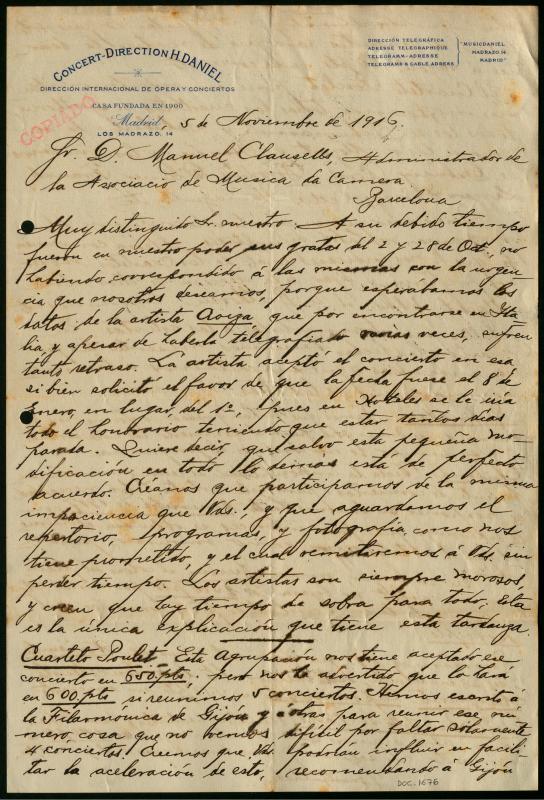 CONCERT-DIRECTION H. DANIEL
DIRECCIÓN INTERNACIONAL DE ÓPERA Y CONCIERTOS
CASA FUNDADA EN 1900
Madrid, 5 de Noviembre de 1916.
LOS MADRAZO, 14
COPIADO
DIRECCIÓN TELEGRÁFICA
ADRESSE TELEGRAPHIQUE
TELEGRAMM-ADRESSE
TELEGRAMS & CABLE ADRESS
"MUSICDANIEL
MADRAZO, 14
MADRID"
Sr. D. Manuel Clausells, Administrador de
la Asociació de Musica da Camera
Barcelona
Muy distinguido Sr. nuestro: A su debido tiempo
fueron en nuestro poder sus gratas del 2 y 28 de Oct., no
habiendo correspondido á las mismas con la urgen-
cia que nosotros deseamos, porque esperabamos los
datos de la artista que por encontrarse en Ita-
lia, y apesar de haberla telegrafiado varias veces, sufren
tanto retraso. La artista aceptó el concierto en esa
si bien solicitó el favor de que la fecha fuese el 8 de
Enero, en lugar, del 1º, pues en se le iria
todo el honorario teniendo que estar tantos dias
parada. Quiere decir, que salvo esta pequeña mo-
dificación en todo lo demás está de perfecto
acuerdo. Créanos que participamos de la misma
impaciencia que Vds. y que aguardamos el
repertorio, programas, y fotografia como nos
tiene prometido, y el cual remitiremos á Vds. sin
perder tiempo. Los artistas son siempre morosos
y creen que hay tiempo de sobra para todo; Esta
es la única explicación que tiene esta tardanza.
Cuarteto Poulet - Esta Agrupación nos tiene aceptado ese
concierto en 650 pts; pero nos ha advertido que lo hará
en 600 pts, si reunimos 5 conciertos. Hemos escrito á
la Filarmónica de Gijón y á otras para reunir ese nú
mero, cosa que no vemos dificil por faltar solamente
4 conciertos. Creemos que Vds. podrian influir en facili-
tar la aceleración de esto, recomendando á Gijón
DOC. 1676